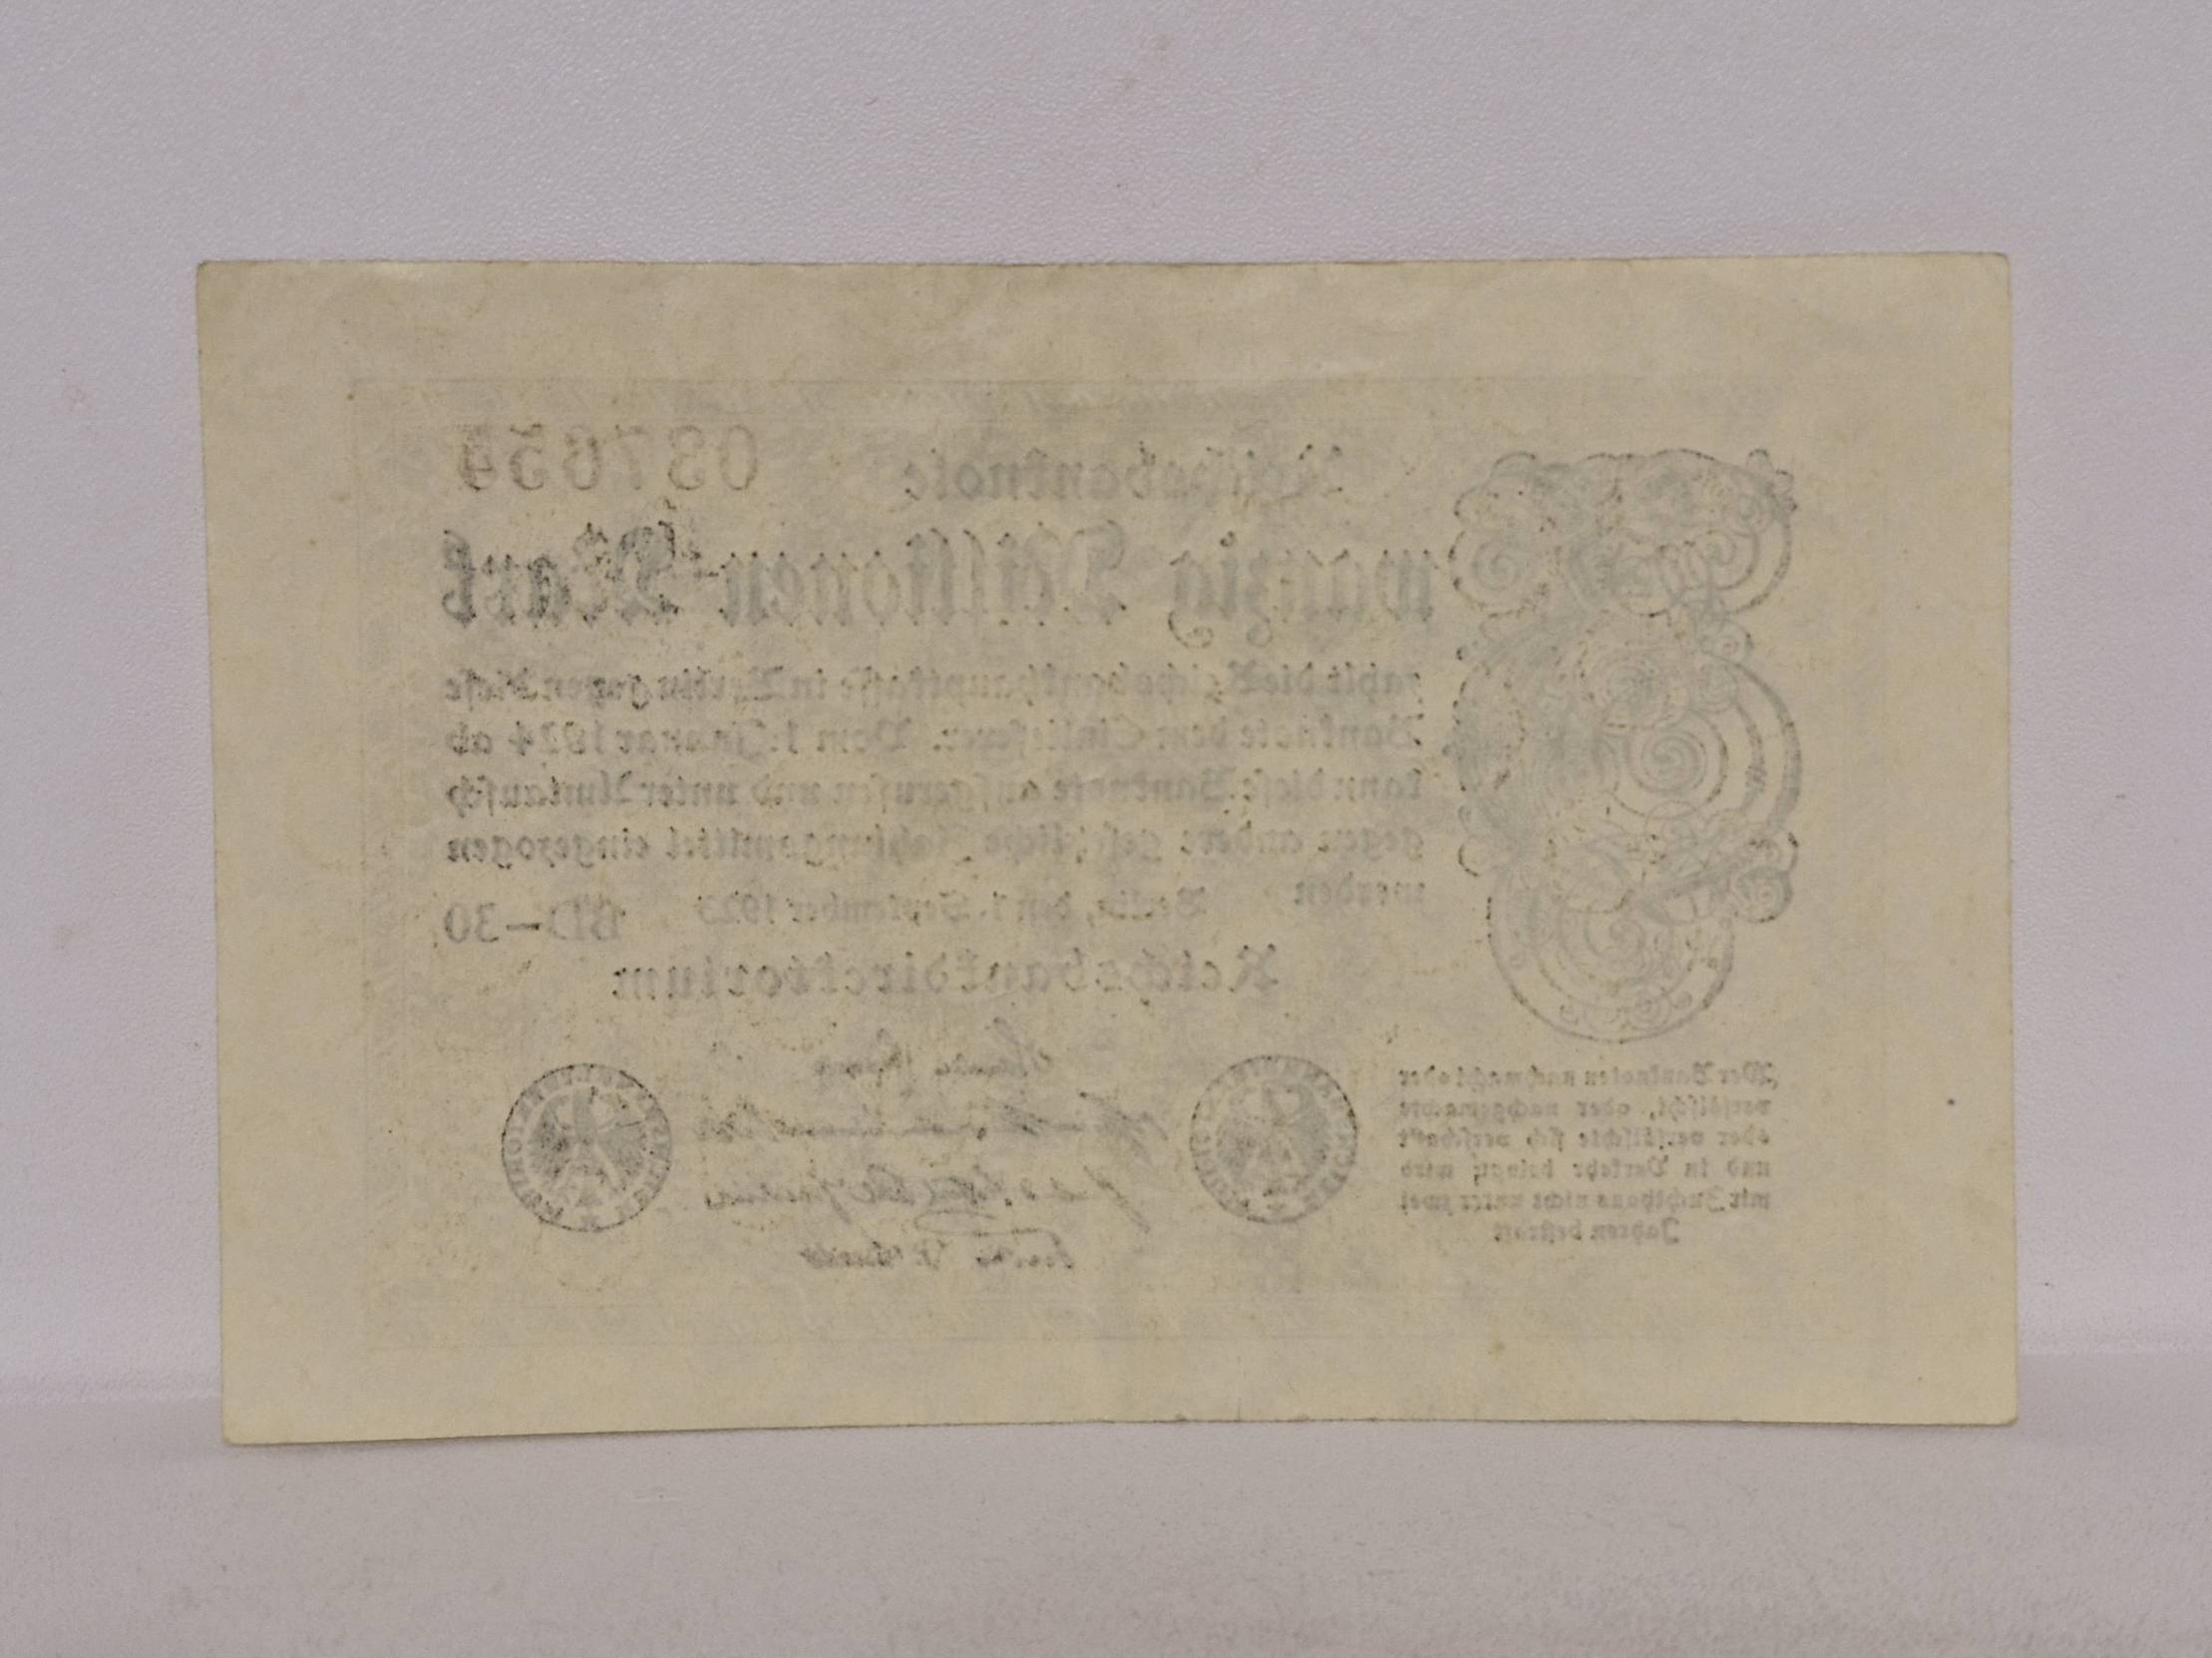 037654
Reichsbanknote
wanzig Millionen Mark
zahlt die Reichsbankhauptkasse in Berlin gegen diese
Banknote dem Einlieferer. Vom 1. Januar 1924 ab
kann diese Banknote aufgerufen und unter Umtausch
gegen andere gesetzliche Zahlungsmittel eingezogen
werden
Berlin, den 1. September 1923
BD-30
Reichsbankdirektorium
Wer Banknoten nachmacht oder
verfälscht, oder nachgemachte
oder verfälschte sich verschafft
und in Verkehr bringt, wird
mit Zuchthaus nicht unter zwei
Jahren bestraft